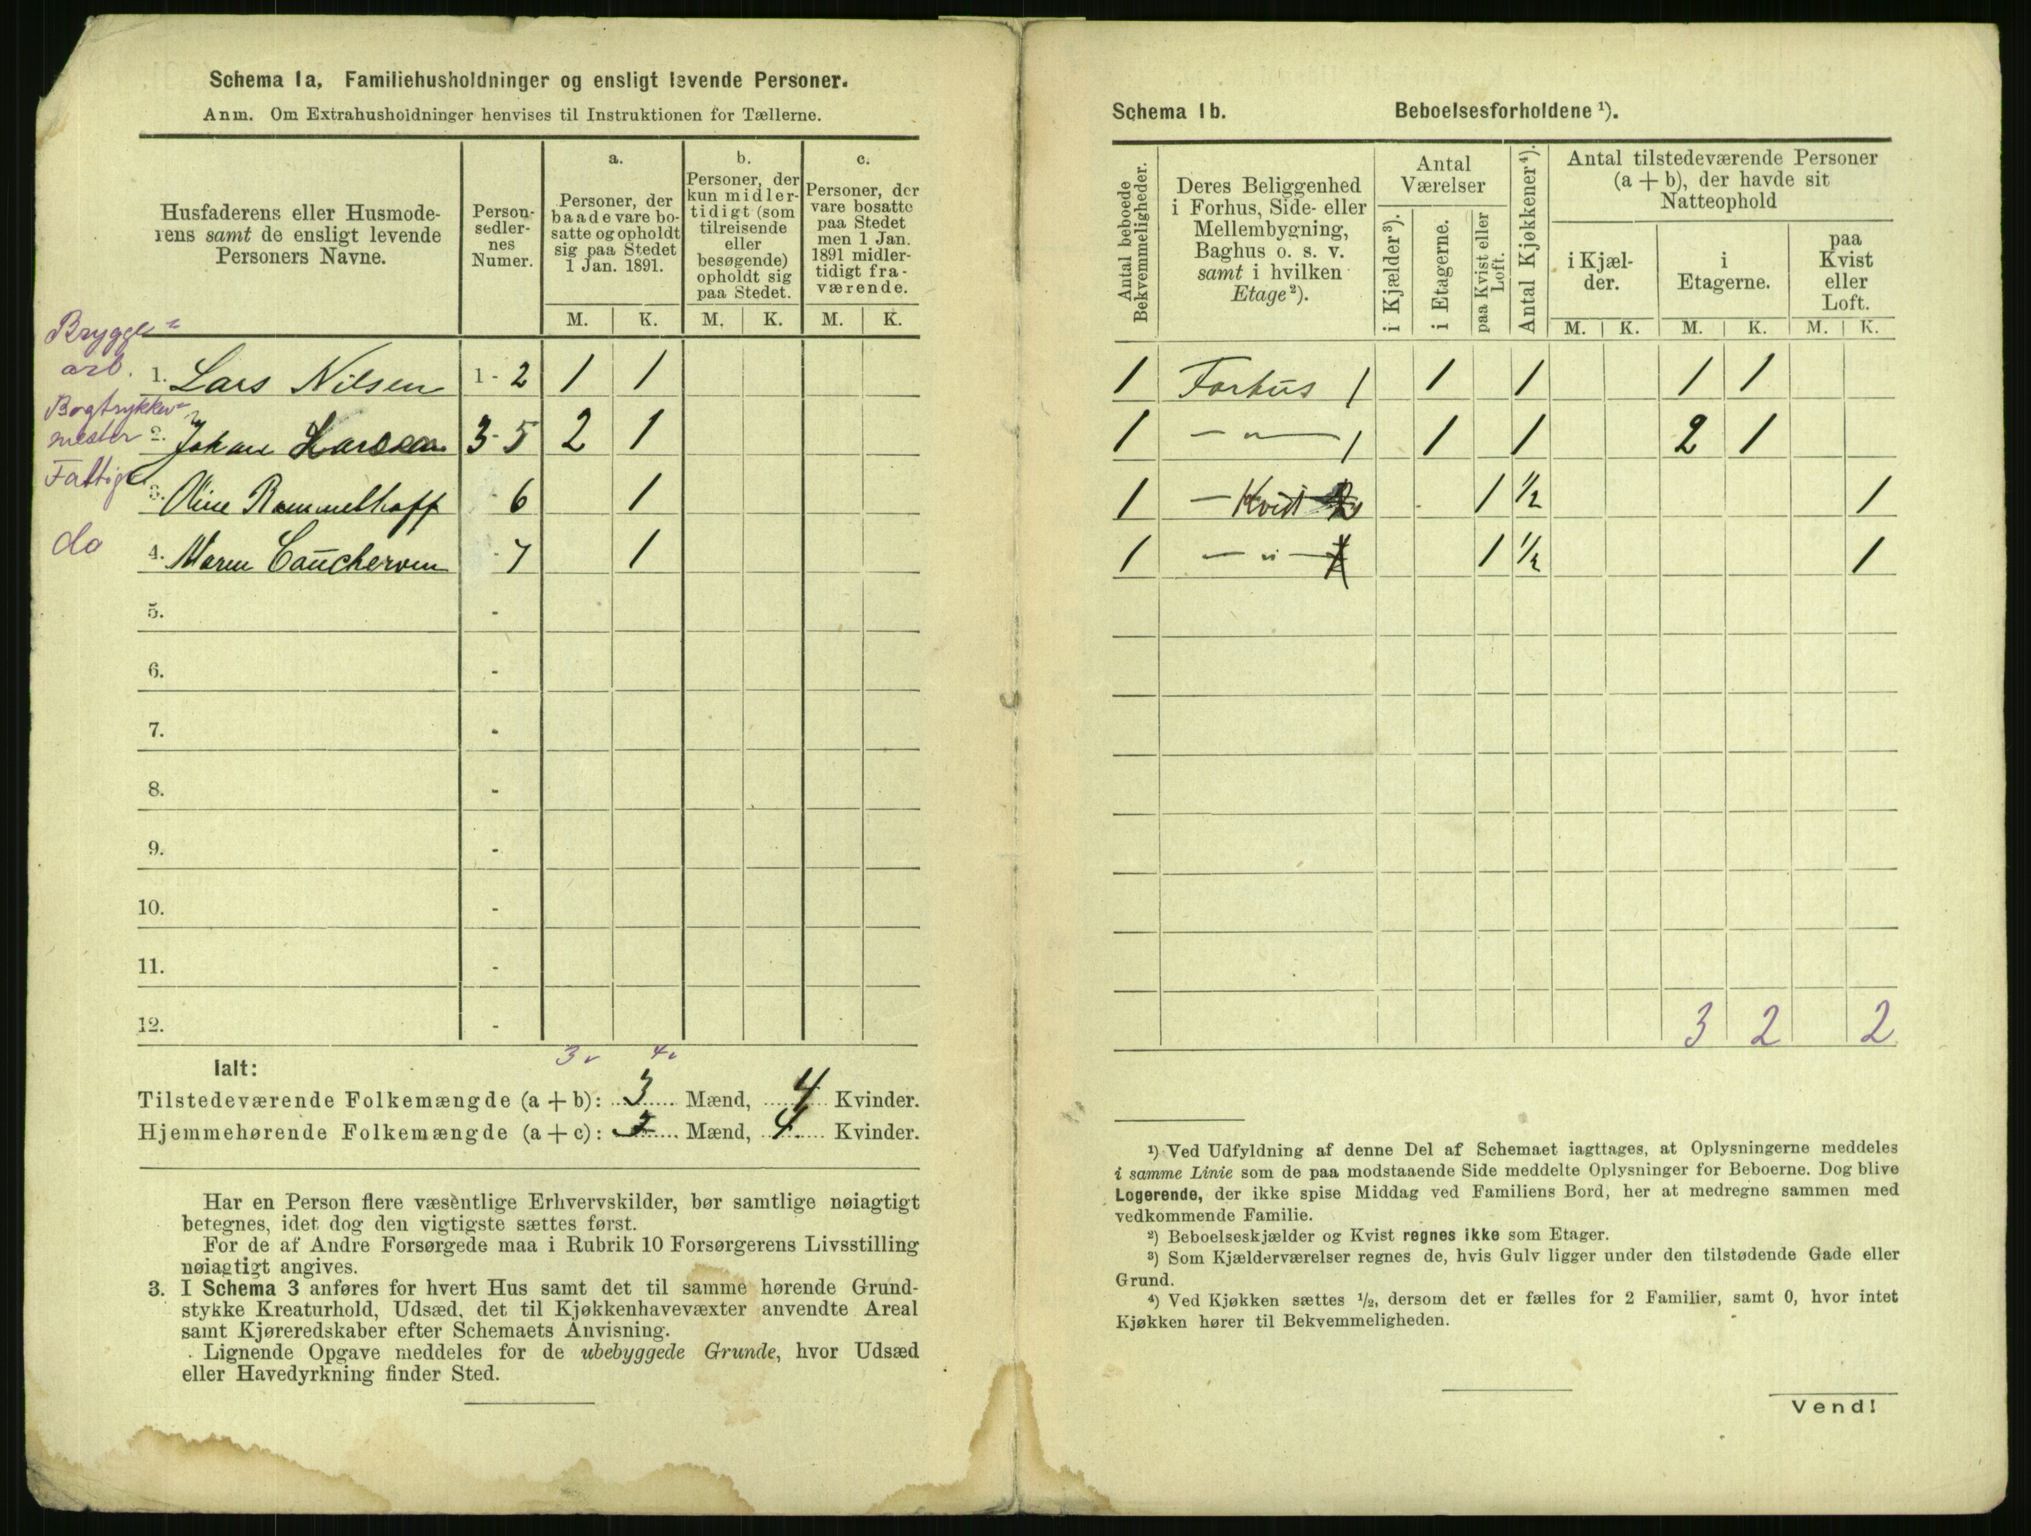 Schema 1a. Familiehusholdninger og ensligt levende Personer.
Anm. Om Extrahusholdninger henvises til Instruktionen for Tællerne.
Husfaderens eller Husmode-
rens samt de ensligt levende
Personers Navne.
Person-
sedler-
nes
Numer.
a.
Personer, der
baade vare bo-
satte og opholdt
sig paa Stedet
1 Jan. 1891.
b.
Personer, der
kun midler-
tidigt (som
tilreisende
eller
besøgende)
opholdt sig
paa Stedet.
c.
Personer, der
vare bosatte
paa Stedet
men 1 Jan.
1891 midler-
tidigt fra-
værende.
M. K. M. K. M. K.
Brygge-
arb. 1. Lars Nilsen 1 - 2 1 1
Bogtrykker-
mester 2. Johan Larsen 3 - 5 2 1
Fattig 3. Oline Rommelhoff - 6 1
do 4. Maren - 7 1
5. -
6. -
7. -
8. -
9. -
10. -
11. -
12. -
Ialt: 3 4
Tilstedeværende Folkemængde (a + b): 3 Mænd, 4 Kvinder.
Hjemmehørende Folkemængde (a + c): 3 Mænd, 4 Kvinder.
Har en Person flere væsentlige Erhvervskilder, bør samtlige nøiagtigt
betegnes, idet dog den vigtigste sættes først.
For de af Andre Forsørgede maa i Rubrik 10 Forsørgerens Livsstilling
nøiagtigt angives.
3. I Schema 3 anføres for hvert Hus samt det til samme hørende Grund-
stykke Kreaturhold, Udsæd, det til Kjøkkenhavevæxter anvendte Areal
samt Kjøreredskaber efter Schemaets Anvisning.
Lignende Opgave meddeles for de ubebyggede Grunde, hvor Udsæd
eller Havedyrkning finder Sted.
Schema 1b. Beboelsesforholdene ¹).
Antal beboede
Bekvemmeligheder.
Deres Beliggenhed
i Forhus, Side- eller
Mellembygning,
Baghus o. s. v.
samt i hvilken
Etage²).
Antal
Værelser
i Kjælder³).
i Etagerne.
paa Kvist eller
Loft.
Antal Kjøkkener⁴).
Antal tilstedeværende Personer
(a + b), der havde sit
Natteophold
i Kjæl-
der.
i
Etagerne.
paa
Kvist
eller
Loft.
M. K. M. K. M. K.
1 Forhus 1 1 1 1 1
1 — „ — 1 1 1 2 1
1 — Kvist 1 ½ 1
1 — „ — 1 ½ 1
3 2 2
¹) Ved Udfyldning af denne Del af Schemaet iagttages, at Oplysningerne meddeles
i samme Linie som de paa modstaaende Side meddelte Oplysninger for Beboerne. Dog blive
Logerende, der ikke spise Middag ved Familiens Bord, her at medregne sammen med
vedkommende Familie.
²) Beboelseskjælder og Kvist regnes ikke som Etager.
³) Som Kjælderværelser regnes de, hvis Gulv ligger under den tilstødende Gade eller
Grund.
⁴) Ved Kjøkken sættes ½, dersom det er fælles for 2 Familier, samt 0, hvor intet
Kjøkken hører til Bekvemmeligheden.
Vend!